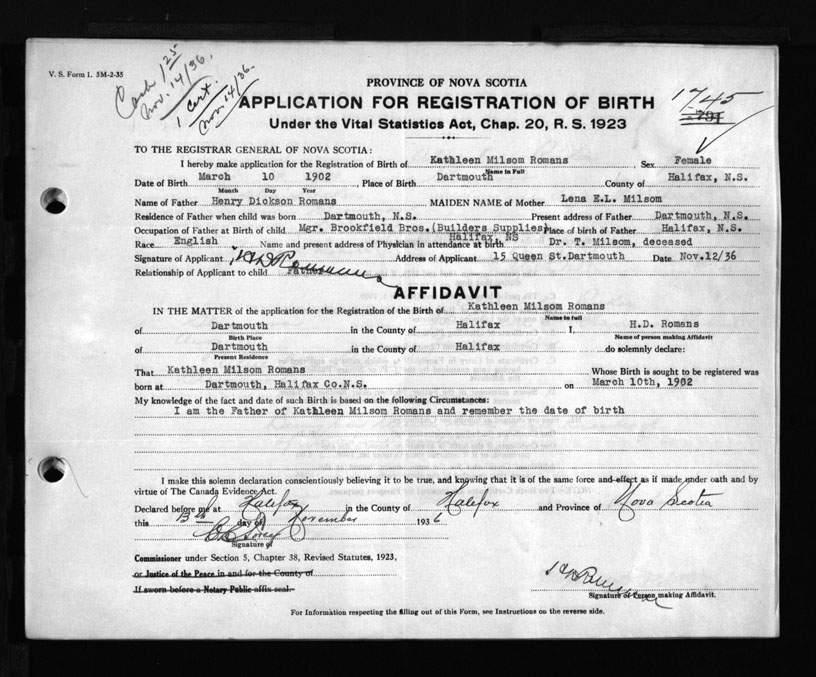 V. S. Form 1. 5M-2-35
Cash 1.25
Nov. 14/36.
1 Cert.
Nov. 14/36.
PROVINCE OF NOVA SCOTIA
APPLICATION FOR REGISTRATION OF BIRTH
1745
Under the Vital Statistics Act, Chap. 20, R. S. 1923
TO THE REGISTRAR GENERAL OF NOVA SCOTIA:
I hereby make application for the Registration of Birth of Kathleen Milsom Romans Sex Female
Name in Full
Date of Birth March 10 1902, Place of Birth Dartmouth County of Halifax, N.S.
Month Day Year
Name of Father Henry Dickson Romans MAIDEN NAME of Mother Lena E.L. Milsom
Residence of Father when child was born Dartmouth, N.S. Present address of Father Dartmouth, N.S.
Occupation of Father at Birth of child Mgr. Brookfield Bros.(Builders Supplies) Place of birth of Father Halifax, N.S.
Halifax, NS
Race English Name and present address of Physician in attendance at birth Dr. T. Milsom, deceased
Signature of Applicant HD Romans Address of Applicant 15 Queen St.Dartmouth Date Nov.12/36
Relationship of Applicant to child Father
AFFIDAVIT
IN THE MATTER of the application for the Registration of the Birth of Kathleen Milsom Romans
Name in full
of Dartmouth in the County of Halifax I, H.D. Romans
Birth Place Name of person making Affidavit
of Dartmouth in the County of Halifax do solemnly declare:
Present Residence
That Kathleen Milsom Romans Whose Birth is sought to be registered was
born at Dartmouth, Halifax Co.N.S. on March 10th, 1902
My knowledge of the fact and date of such Birth is based on the following Circumstances:
I am the Father of Kathleen Milsom Romans and remember the date of birth
I make this solemn declaration conscientiously believing it to be true, and knowing that it is of the same force and effect as if made under oath and by
virtue of The Canada Evidence Act.
Declared before me at Halifax in the County of Halifax and Province of Nova Scotia
this 13th day of November 1936
Signature of
Commissioner under Section 5, Chapter 38, Revised Statutes, 1923,
or Justice of the Peace in and for the County of
If sworn before a Notary Public affix seal.
HD Romans
Signature of Person making Affidavit.
For Information respecting the filling out of this Form, see Instructions on the reverse side.